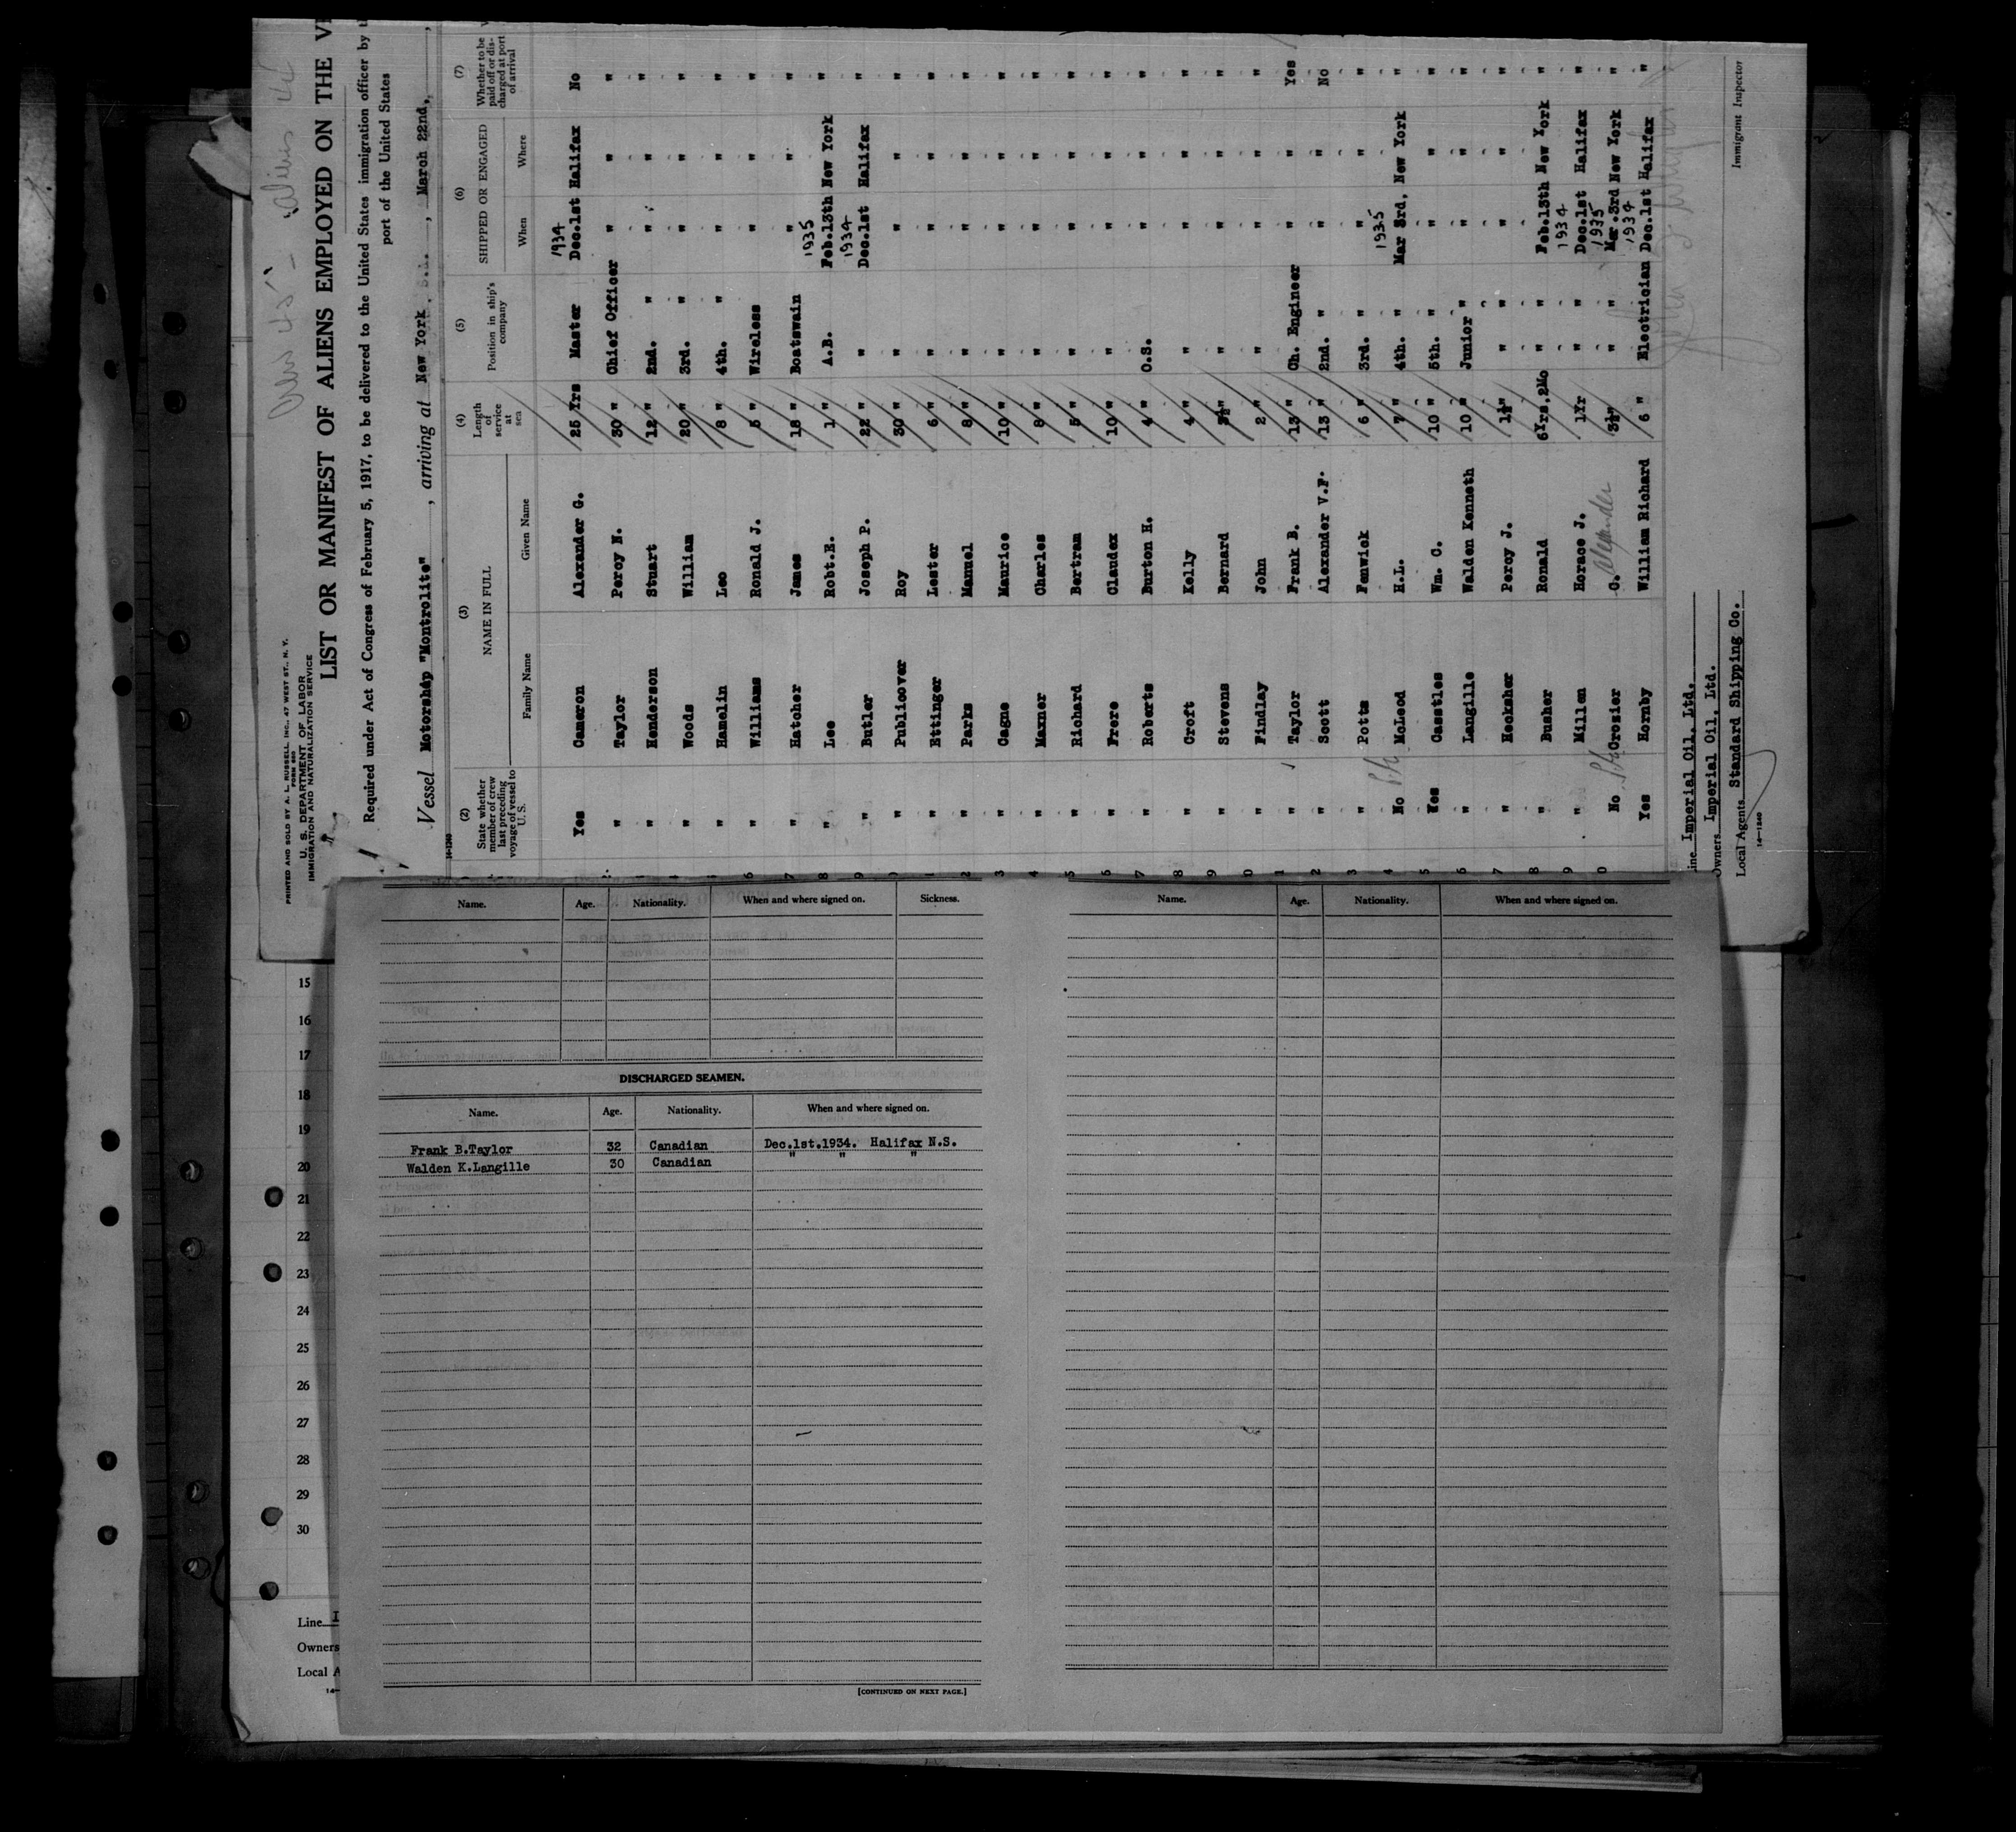 PRINTED AND SOLD BY A. L. RUSSELL INC., 47 WEST ST., N. Y.
FORM 680
U. S. DEPARTMENT OF LABOR
IMMIGRATION AND NATURALIZATION SERVICE
LIST OR MANIFEST OF ALIENS EMPLOYED ON THE
Required under Act of Congress of February 5, 1917, to be delivered to the United States immigration officer by
port of the United States
Vessel Motorship "Montrolite", arriving at New York, March 22nd,
14-1240
(2) State whether member of crew last preceding voyage of vessel to U. S. (3) NAME IN FULL Family Name Given Name (4) Length of service at sea (5) Position in ship's company (6) SHIPPED OR ENGAGED When Where (7) Whether to be paid off or discharged at port of arrival
1934
Yes Cameron Alexander G. 25 Yrs Master Dec.1st Halifax No
" Taylor Percy N. 30 " Chief Officer " " "
" Henderson Stuart 12 " 2nd. " " " "
" Woods William 20 " 3rd. " " " "
" Hamelin Leo 8 " 4th. " " " "
" Williams Ronald J. 5 " Wireless " " "
" Hatcher James 18 " Boatswain " " "
1935
" Lee Robt.E. 1 " A.B. Feb.13th New York "
1934
" Butler Joseph P. 22 " " Dec.1st Halifax "
" Publicover Roy 30 " " " " "
" Ettinger Lester 6 " " " " "
" Parks Manuel 8 " " " " "
" Cagne Maurice 10 " " " " "
" Maxner Charles 8 " " " " "
" Richard Bertram 5 " " " " "
" Frere Claudex 10 " " " " "
" Roberts Burton H. 4 " O.S. " " "
" Croft Kelly 4 " " " " "
" Stevens Bernard 3½ " " " " "
" Findlay John 2 " " " " "
" Taylor Frank B. 13 " Ch. Engineer " " Yes
" Scott Alexander V.F. 13 " 2nd. " " " No
" Potts Fenwick 6 " 3rd. " " " "
1935
No McLeod H.L. 7 " 4th. " Mar 3rd, New York "
Yes Casstles Wm. C. 10 " 5th. " " " "
" Langille Walden Kenneth 10 " Junior " " " "
" Hecksher Percy J. 1½ " " " " " "
" Busher Ronald 6Yrs,2Mo " " Feb.13th New York "
1934
" Millen Horace J. 1Yr " " Dec.1st Halifax "
1935
No Crozier C. Alexander 3½" " " Mar.3rd New York "
1934
Yes Hornby William Richard 6 " Electrician Dec.1st Halifax "
Line Imperial Oil. Ltd.
Owners Imperial Oil. Ltd.
Local Agents Standard Shipping Co.
14-1240
Immigrant Inspector
Name. Age. Nationality. When and where signed on. Sickness.
DISCHARGED SEAMEN.
Name. Age. Nationality. When and where signed on.
Frank B.Taylor 32 Canadian Dec.1st.1934. Halifax N.S.
Walden K.Langille 30 Canadian " " "
[CONTINUED ON NEXT PAGE.]
Name. Age. Nationality. When and where signed on.
15
16
17
18
19
20
21
22
23
24
25
26
27
28
29
30
Line I
Owners
Local A
14—